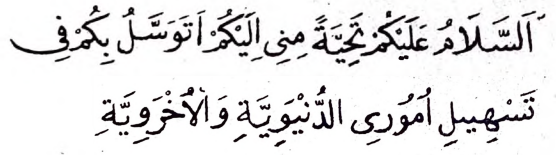 اَلسَّلَامُ عَلَيْكُمْ تَحِيَّةً مِنِى اِلَيْكُمْ اَتَوَسَّلُ بِكُمْ فِى
تَسْهِيلِ اُمُورِى الدُّنْيَوِيَّةِ وَالْاُخْرَوِيَّةِ